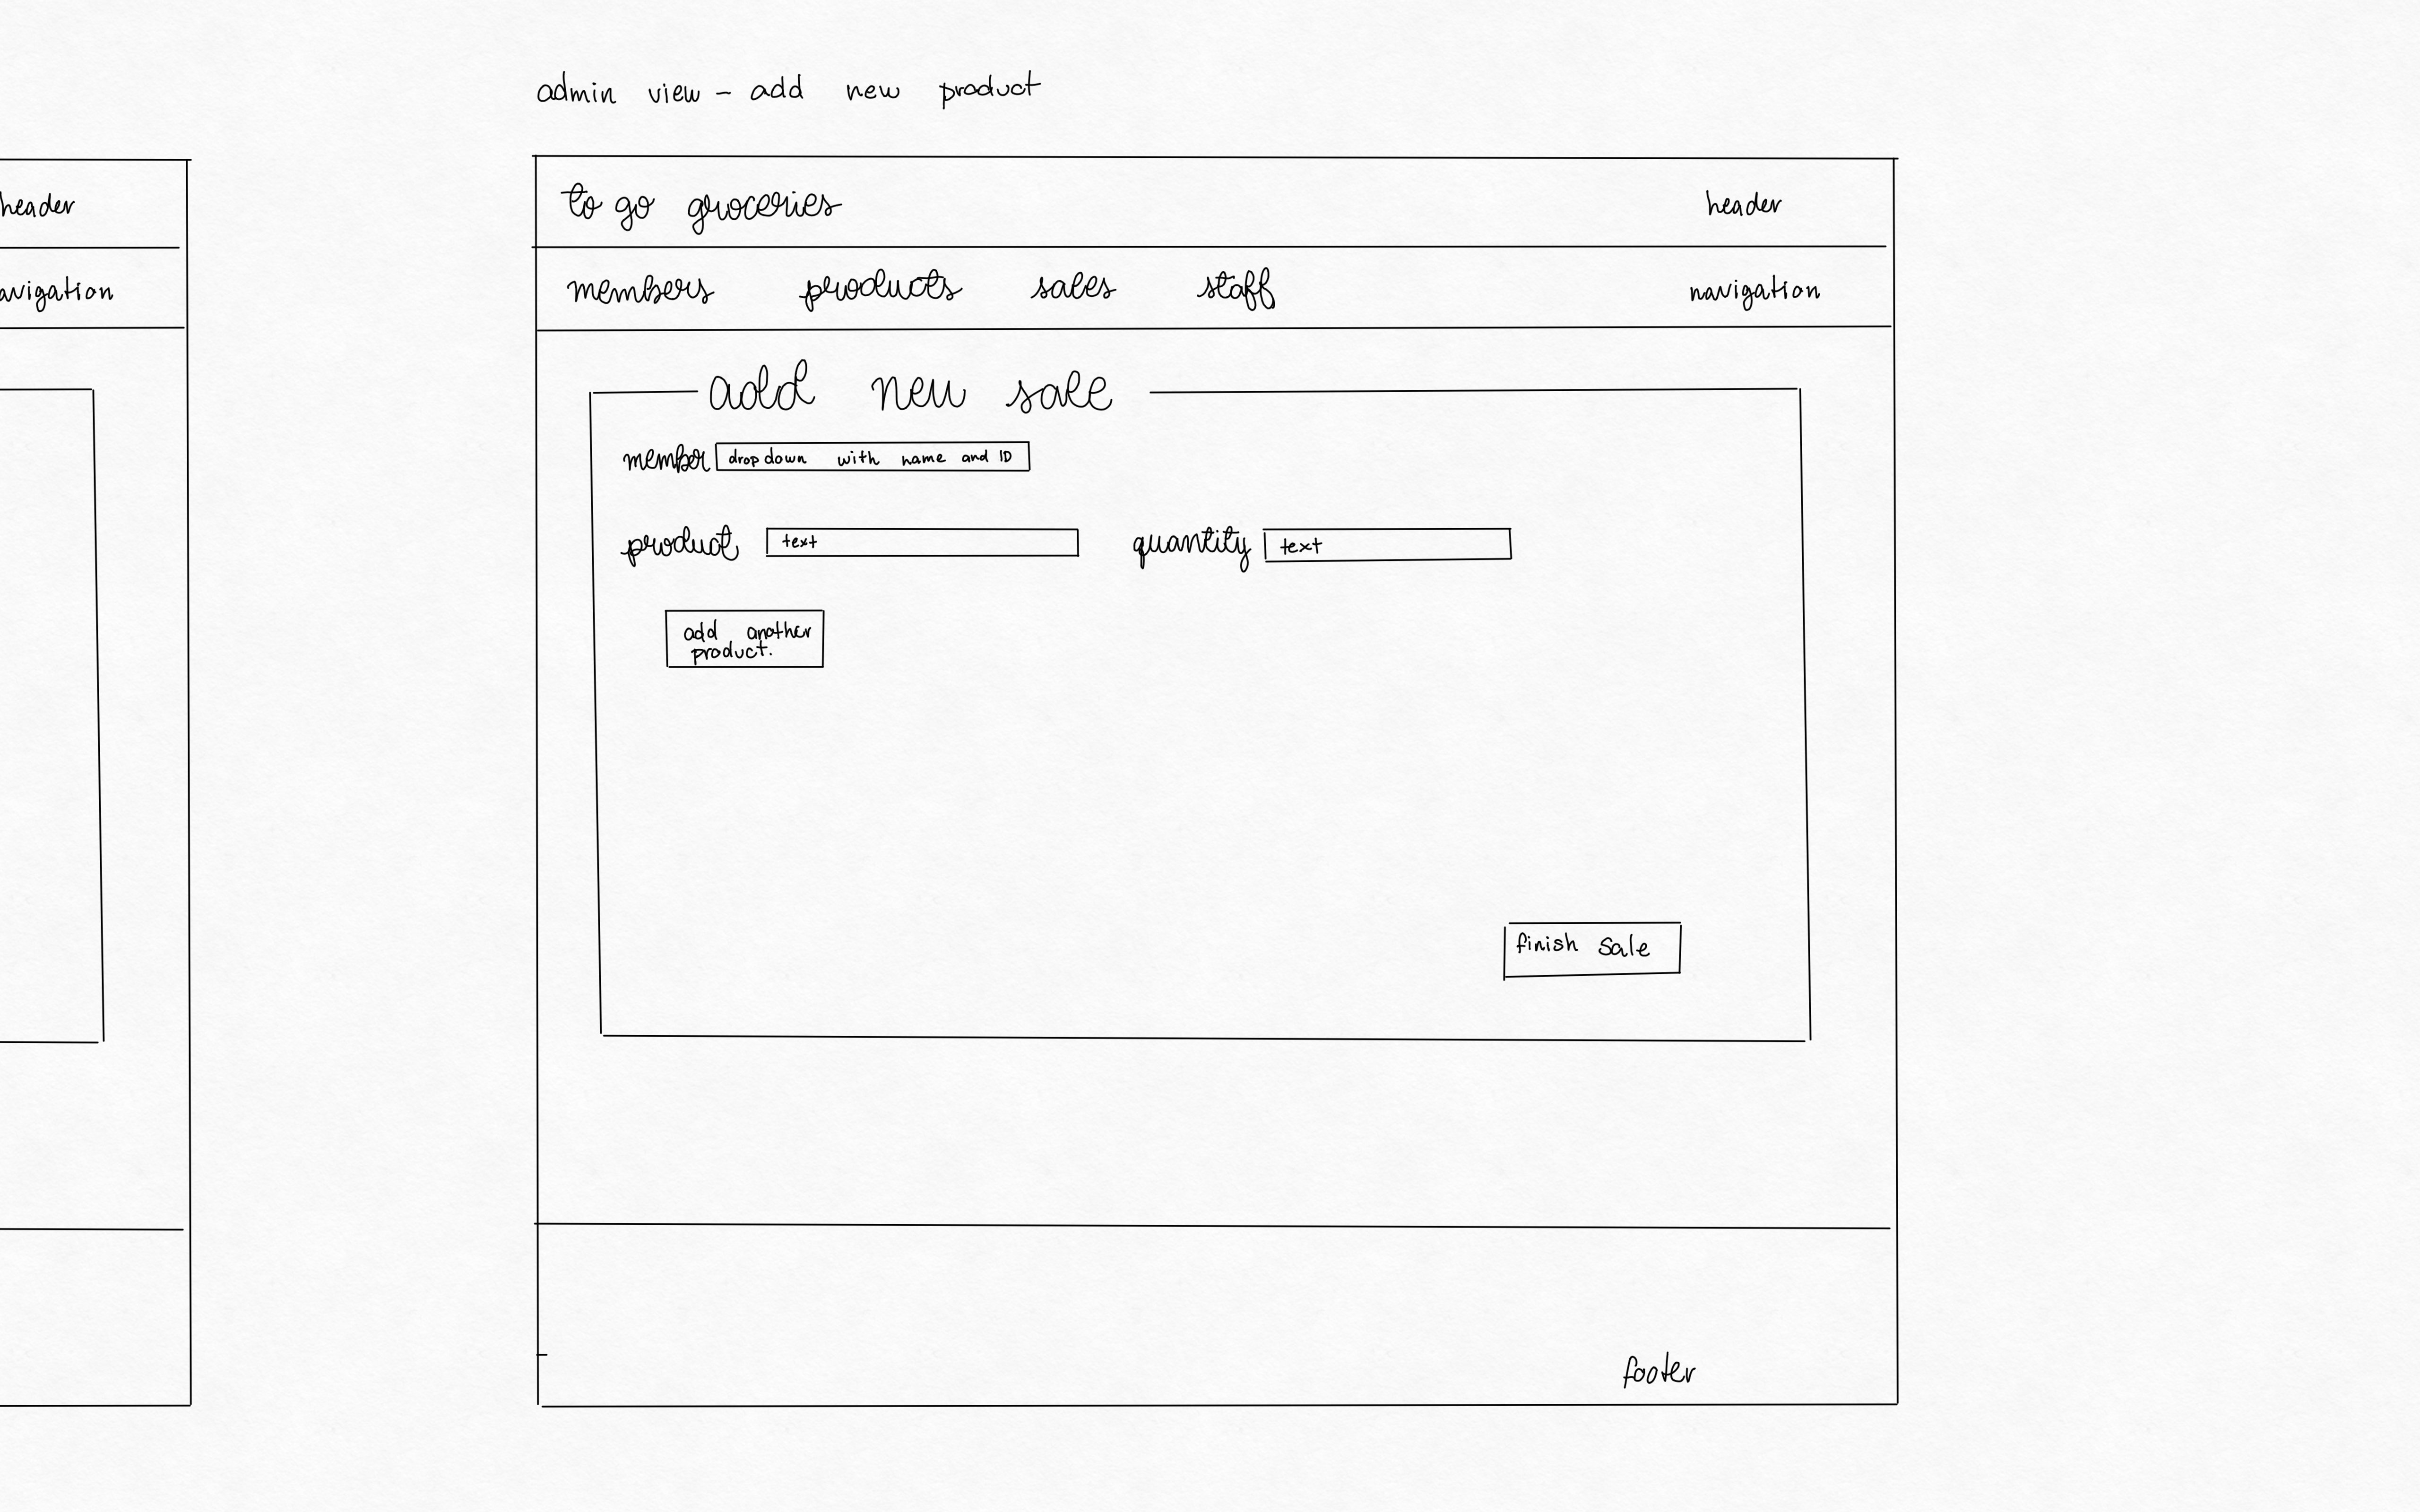 admin view - add new product
header
to go groceries header
avigation
members products sales staff navigation
add new sale
member drop down with name and ID
product text quantity text
add another
product.
finish sale
footer